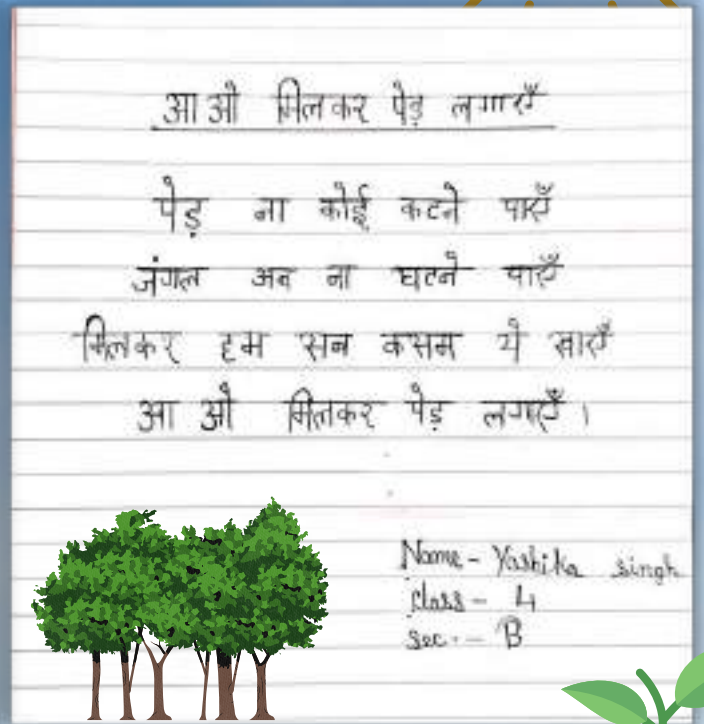 आओ मिलकर पेड़ लगाएँ
पेड़ ना कोई कटने पाएँ
जंगल अब ना घटने पाएँ
मिलकर हम सब कसम ये खाएँ
आओ मिलकर पेड़ लगाएँ ।
Name - Yashika singh
class - 4
sec. - B